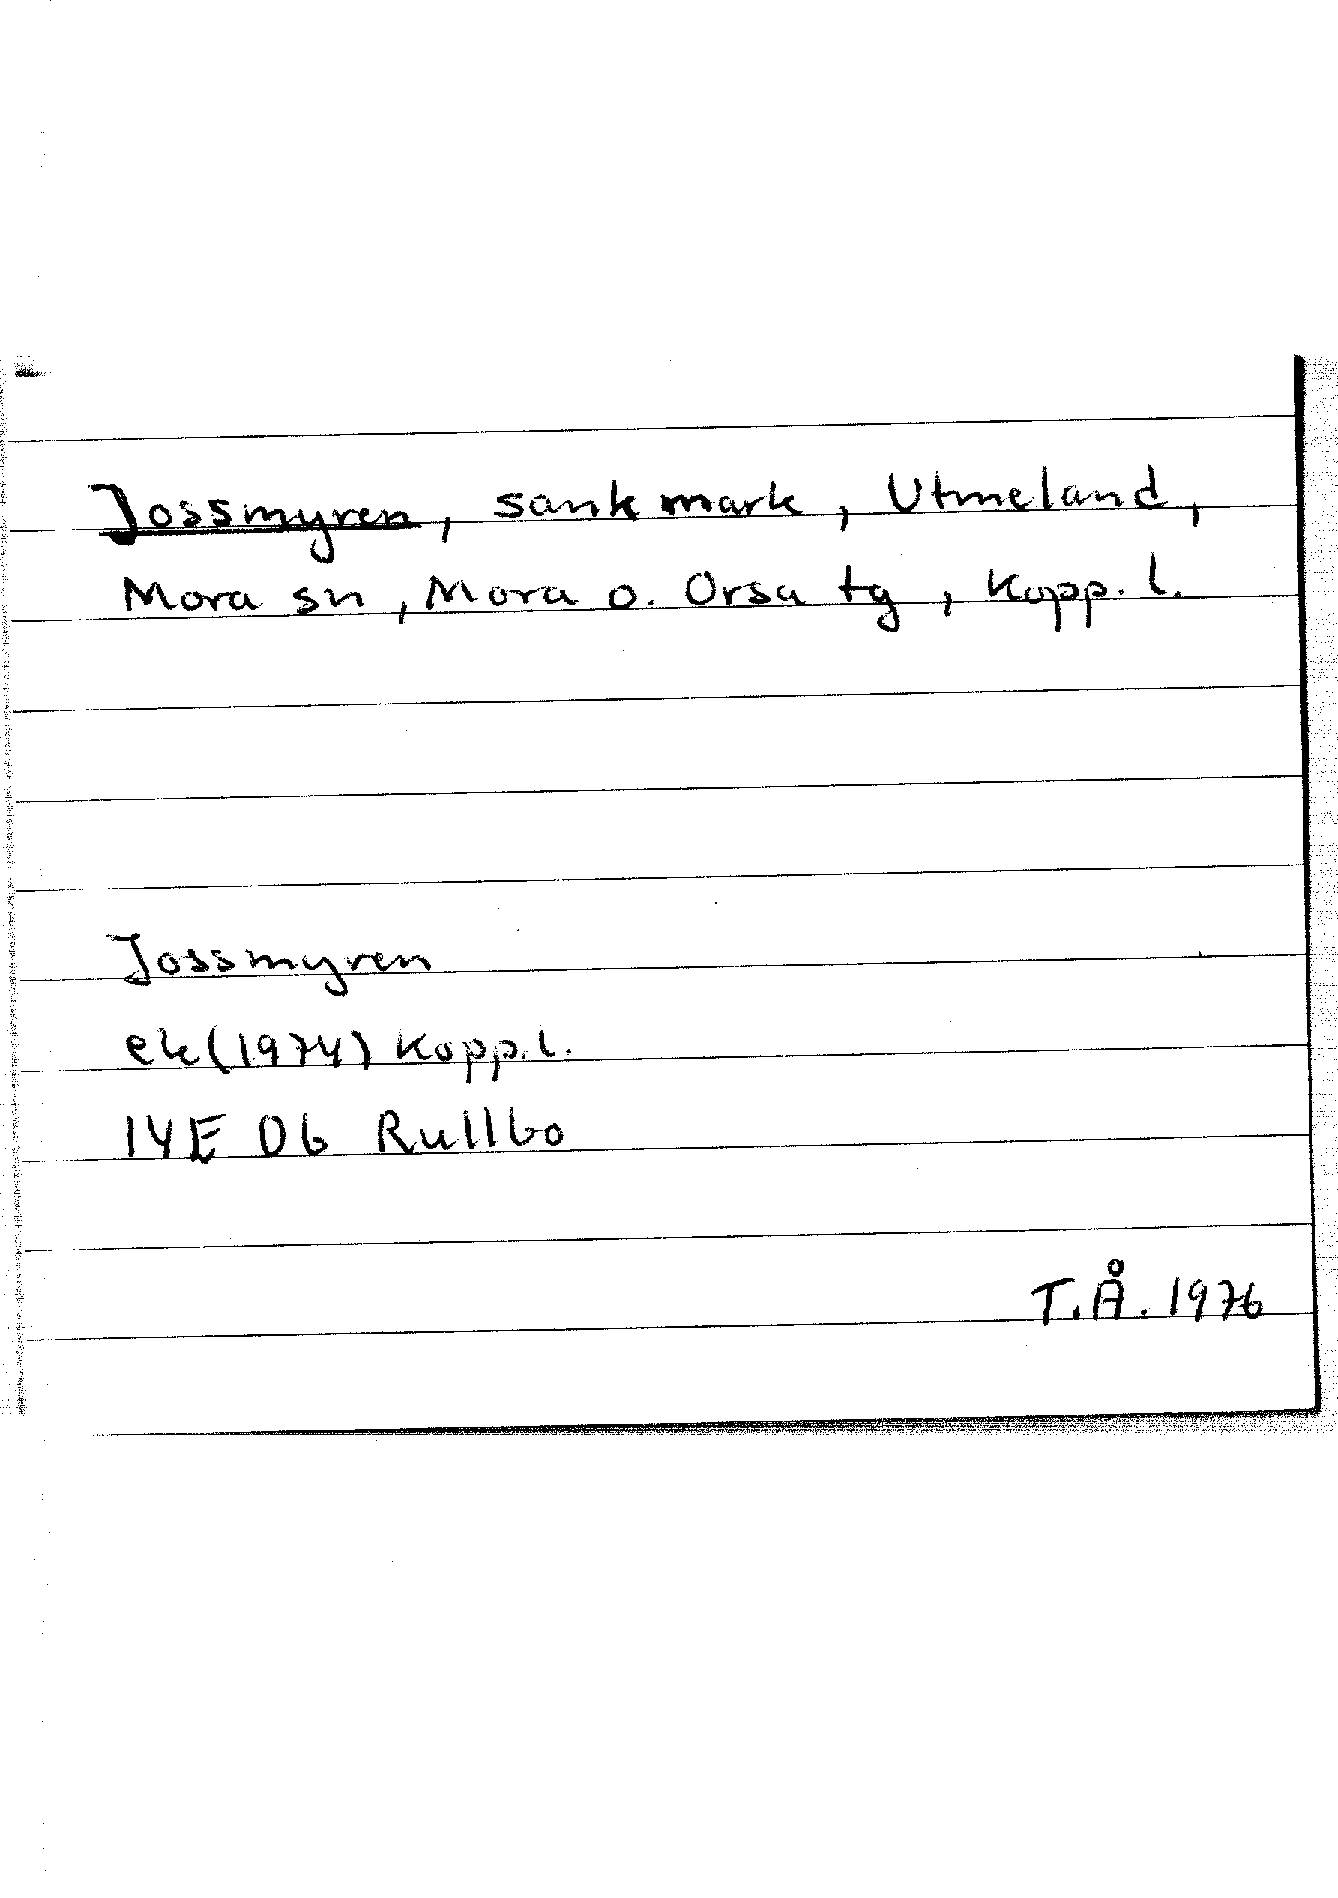 Jossmyren, sank mark, Utmeland,
Mora sn, Mora o. Orsa tg, Kopp. l.
Jossmyren
ek (1974) Kopp. l.
14E 0b Rullbo
T.Å. 1976